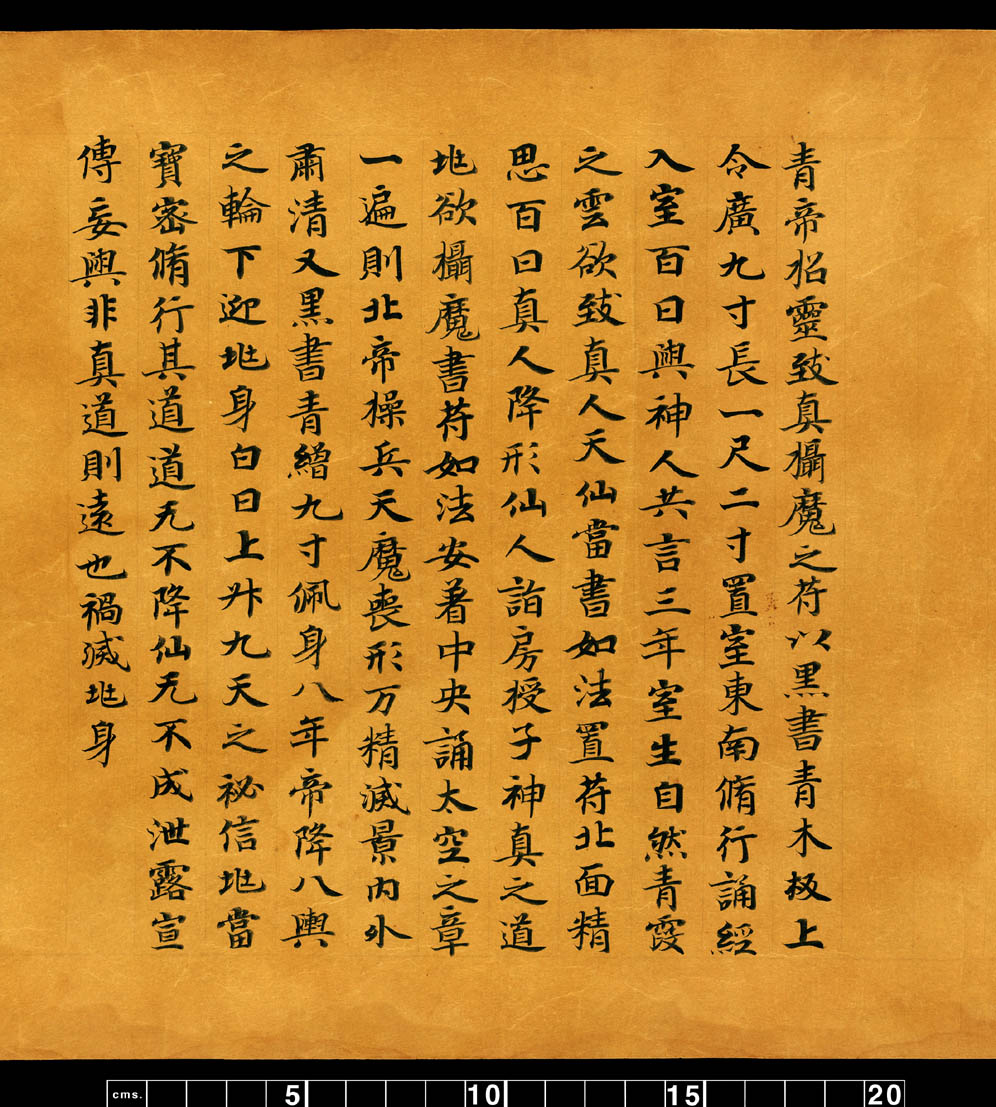 青帝招靈致真攝魔之苻以黑書青木板上
令廣九寸長一尺二寸置室東南脩行誦經
入室百日與神人共言三年室生自然青霞
之雲欲致真人天仙當書如法置苻北面精
思百日真人降形仙人詣房授子神真之道
兆欲攝魔書苻如法安著中央誦太空之章
一遍則北帝操兵天魔喪形万精滅景内外
肅清又黑書青繒九寸佩身八年帝降八輿
之輪下迎兆身白日上升九天之祕信兆當
寶密脩行其道道无不降仙无不成泄露宣
傳妄與非真道則遠也禍滅兆身
cms. 5 10 15 20